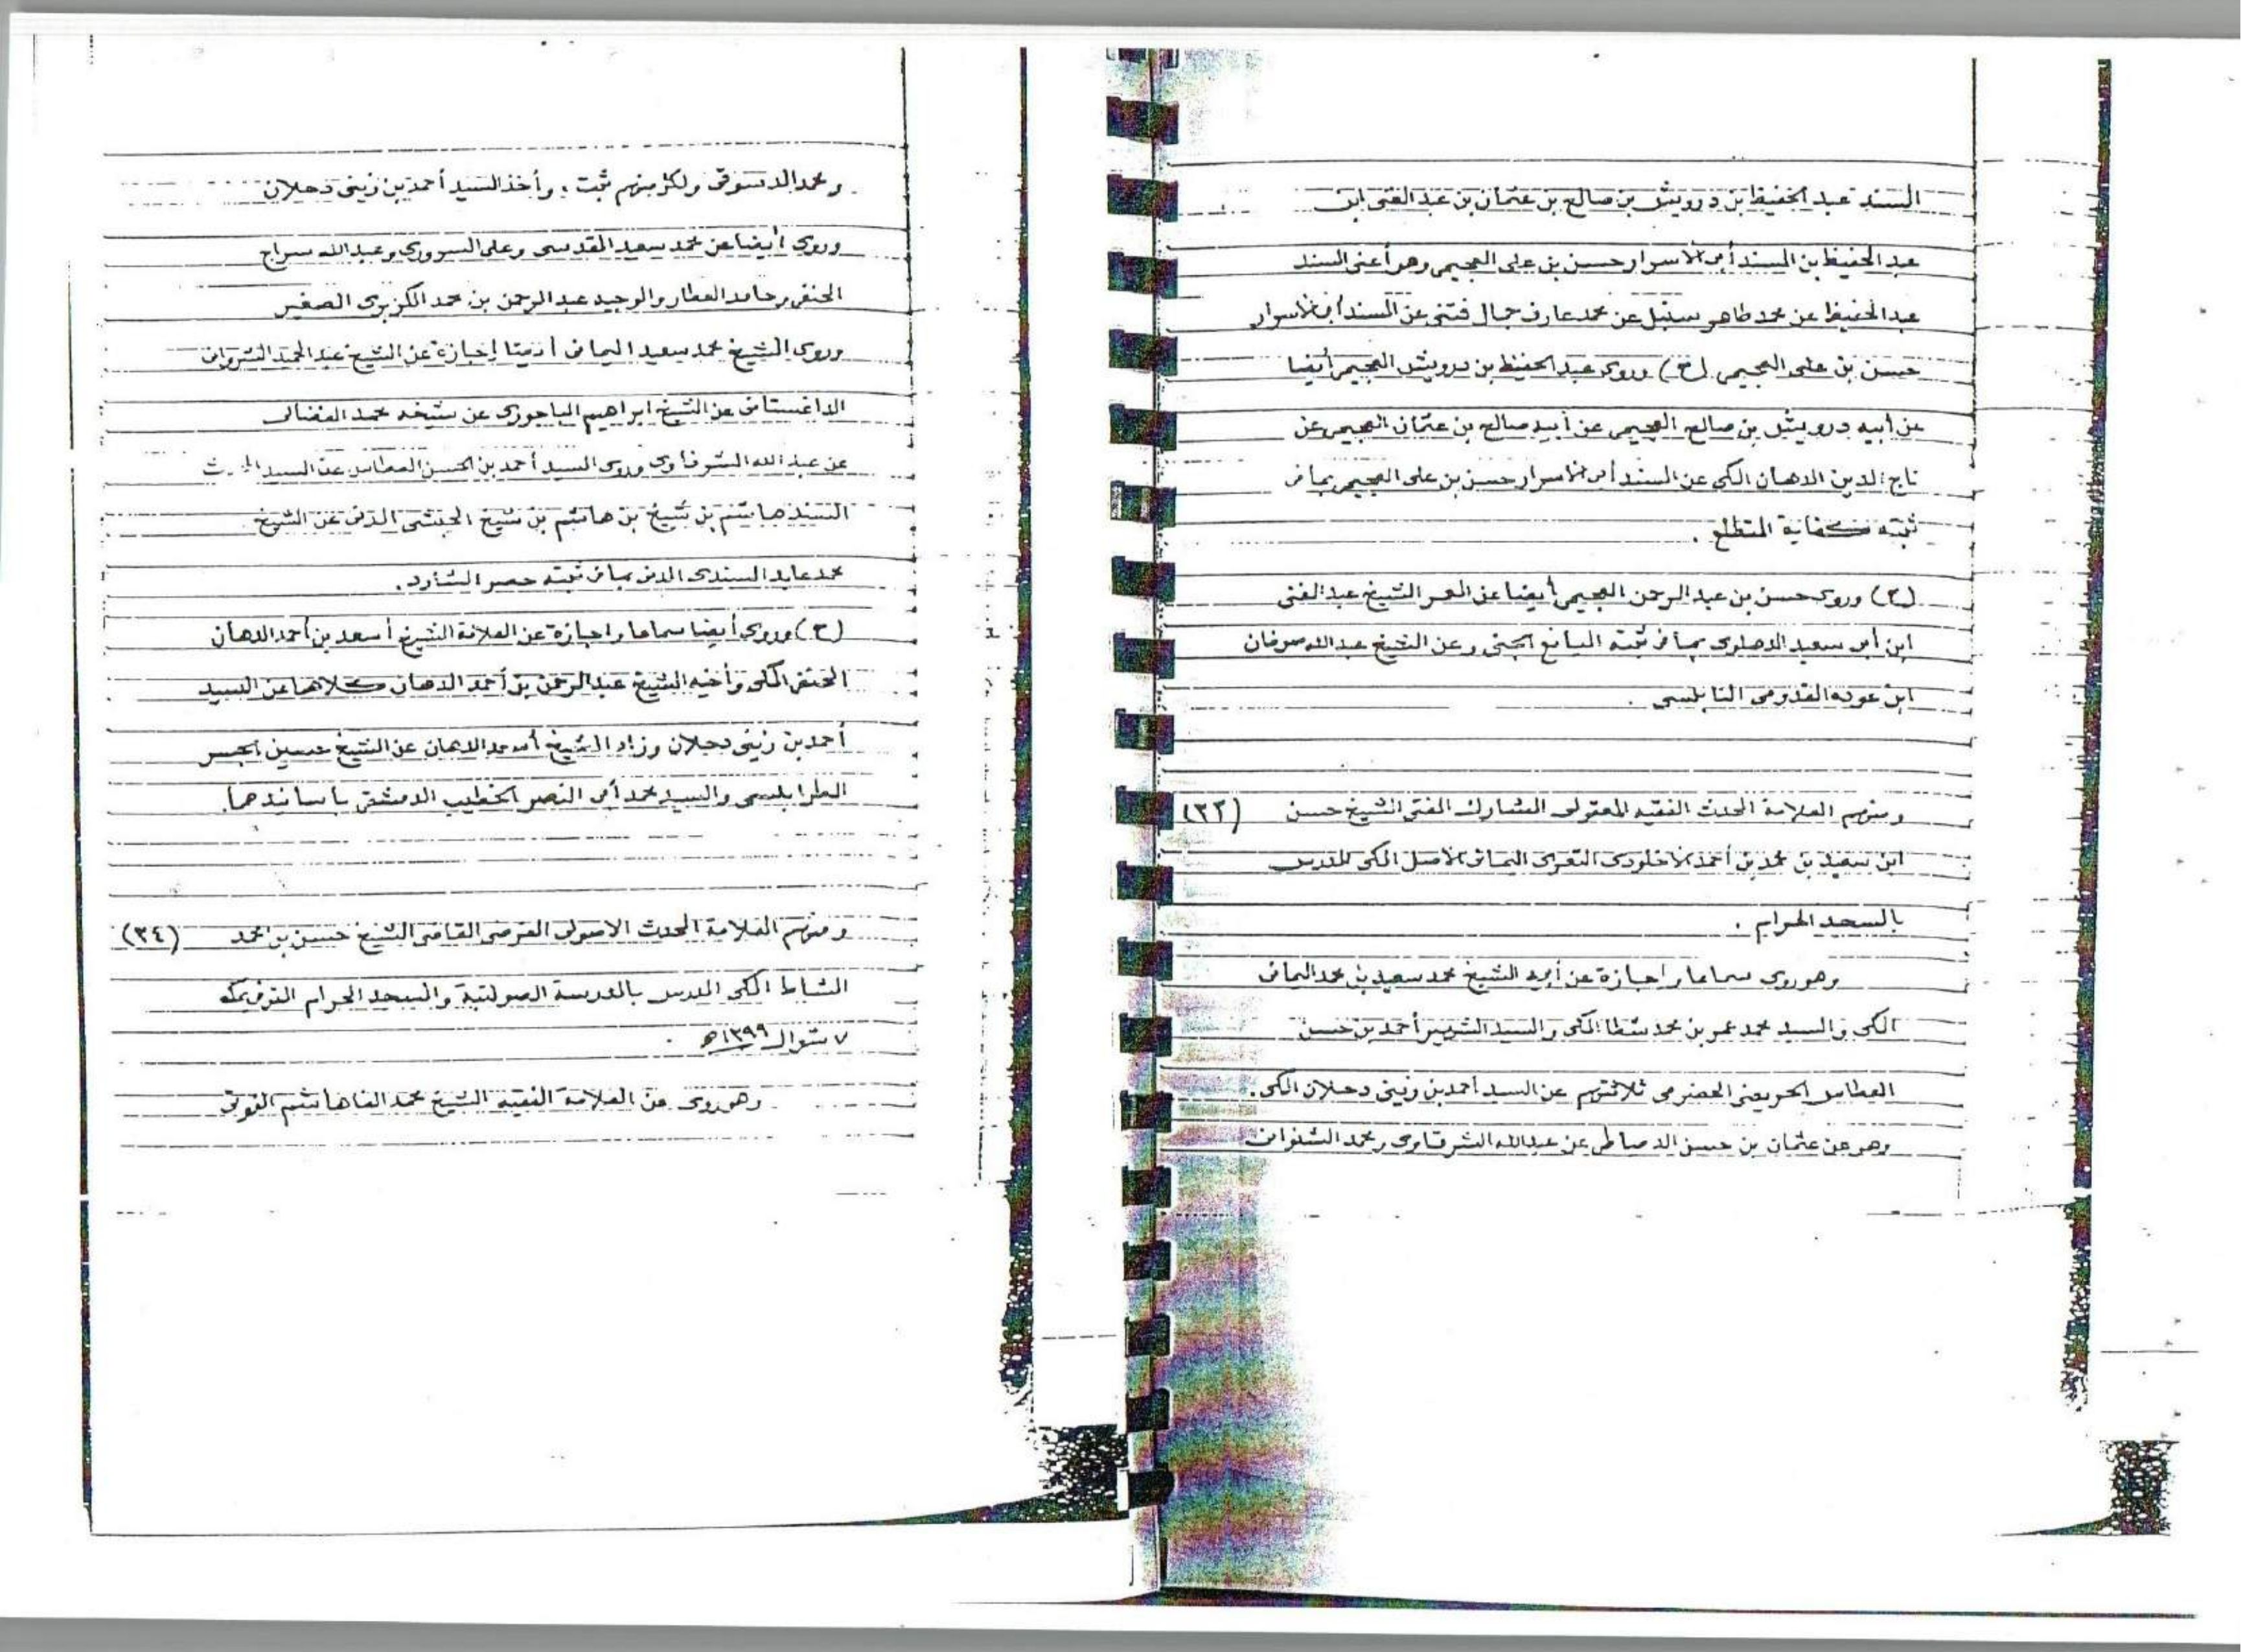 المسند عبد الحفيظ بن درويش بن صالح بن عثمان بن عبد الغنى ابن
عبد الحفيظ بن المسند أبى الاسرار حسن بن على العجيمى وهو أعنى المسند
عبد الحفيظ عن محمد طاهر سنبل عن محمد عارف جمال فتنى عن المسند أبى الاسرار
حسن بن على العجيمى (ح) وروى عبد الحفيظ بن درويش العجيمى أيضا
عن أبيه درويش بن صالح العجيمى عن أبيه صالح بن عثمان العجيمى عن
تاج الدين الدهان المكى عن المسند أبى الاسرار حسن بن على العجيمى بما فى
ثبته كفاية المتطلع .
(ح) وروى حسن بن عبد الرحمن العجيمى أيضا عن المعمر الشيخ عبد الغنى
ابن أبى سعيد الدهلوى بما فى ثبته اليانع الجنى وعن الشيخ عبد الله صوفان
ابن عوده القدومى النابلسى .
ومنهم العلامة المحدث الفقيه المعقولى المشارك المفتى الشيخ حسن (٣٣)
ابن سعيد بن محمد بن أحمد الاخلودى التعزى اليمانى الاصل المكى المدرس
بالمسجد الحرام .
وهو روى سماعا واجازة عن أبيه الشيخ محمد سعيد بن محمد اليمانى
المكى والسيد محمد عمر بن محمد شطا المكى والسيد الشهير أحمد بن حسن
العطاس الحريضى الحضرمى ثلاثتهم عن السيد أحمد بن زينى دحلان المكى .
وهو عن عثمان بن حسن الدمياطى عن عبد الله الشرقاوى ومحمد الشنوانى
ومحمد الدسوقى ولكل منهم ثبت ، وأخذ السيد أحمد بن زينى دحلان
وروى أيضا عن محمد سعيد المقدسى وعلى السرورى وعبد الله سراج
الحنفى وحامد العطار والوجيه عبد الرحمن بن محمد الكزبرى الصغير
وروى الشيخ محمد سعيد اليمانى أيضا إجازة عن الشيخ عبد الحميد الشروانى
الداغستانى عن الشيخ ابراهيم الباجورى عن شيخه محمد الفضالى
عن عبد الله الشرقاوى وروى السيد أحمد بن الحسن العطاس عن السيد
المسند هاشم بن شيخ بن هاشم بن شيخ الحبشى المدنى عن الشيخ
محمد عابد السندى المدنى بما فى ثبته حصر الشارد .
(ح) وروى أيضا سماعا واجازة عن العلامة الشيخ أسعد بن أحمد الدهان
الحنفى المكى وأخيه الشيخ عبد الرحمن بن أحمد الدهان كلاهما عن السيد
أحمد بن زينى دحلان وزاد الشيخ أسعد الدهان عن الشيخ حسين الجسر
الطرابلسى والسيد محمد أبى النصر الخطيب الدمشقى بأسانيدهما .
ومنهم العلامة المحدث الاصولى الفرضى القاضى الشيخ حسن بن محمد (٣٤)
المشاط المكى المدرس بالمدرسة الصولتية والمسجد الحرام المتوفى بمكة
٧ شوال ١٣٩٩ه .
وهو روى عن العلامة الفقيه الشيخ محمد الفا هاشم الفوتى